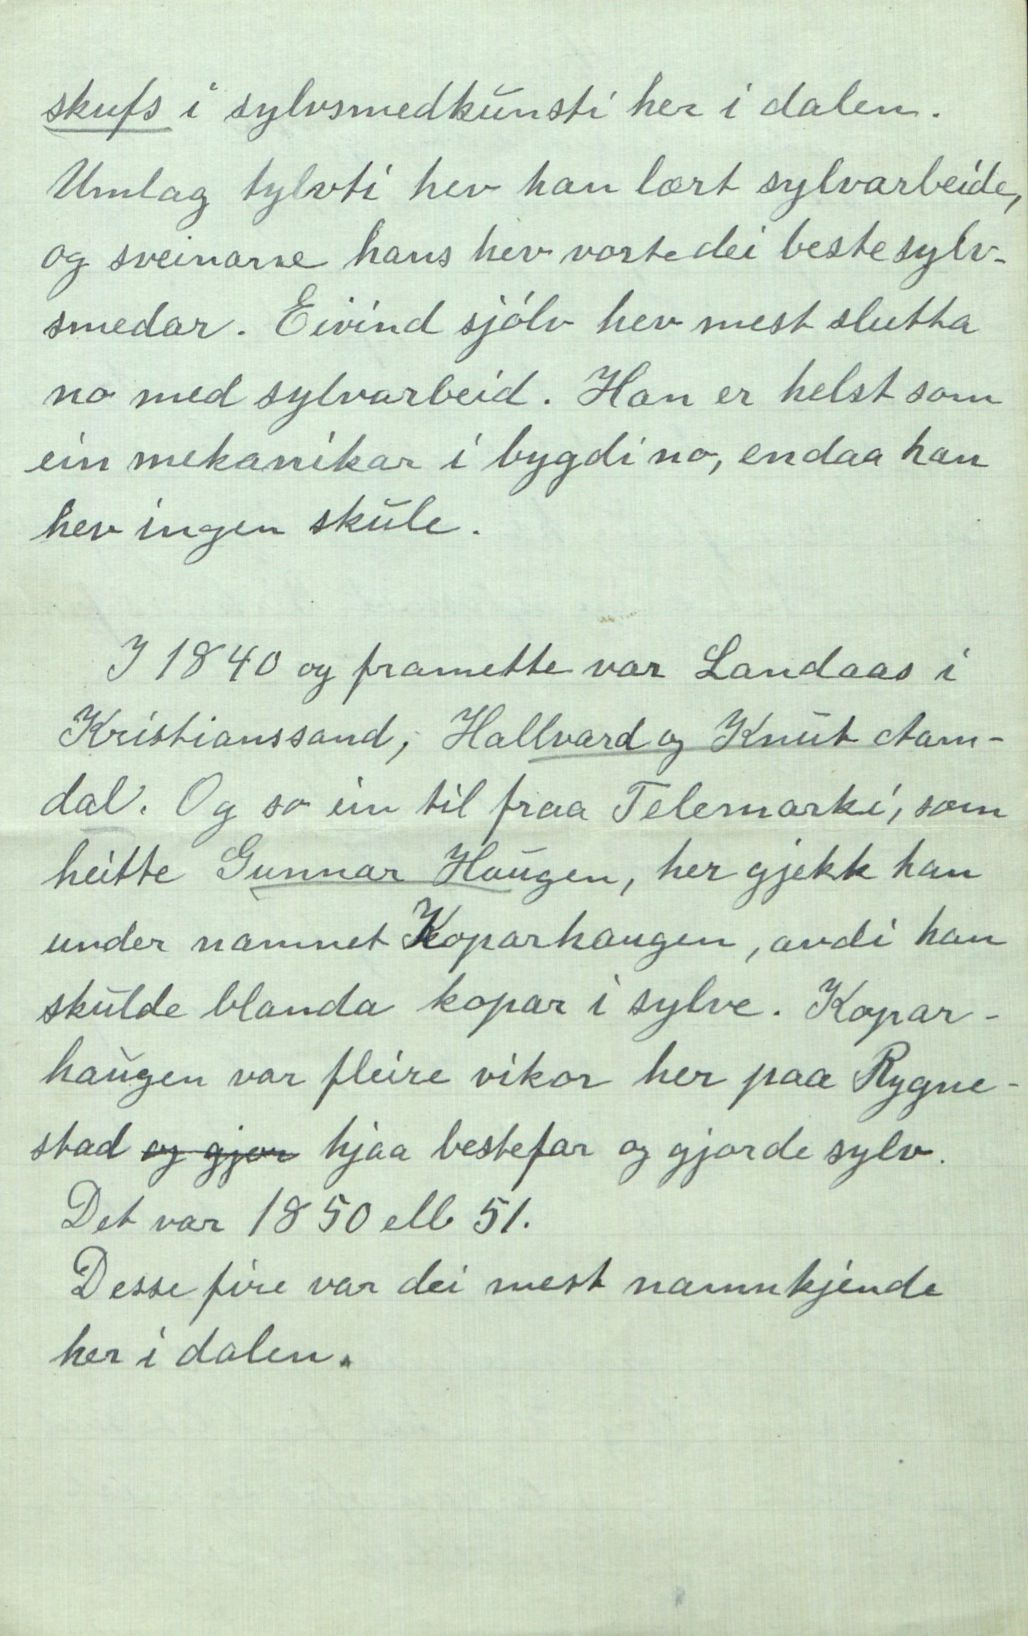 skufs i sylvsmedkunsti her i dalen.
Umlag tylvti hev han lært sylvarbeide,
og sveinarne hans hev vorte dei beste sylv-
smedar. Eivind sjólv hev mest slutta
no med sylvarbeid. Han er helst som
ein mekanikar i bygdi no, endaa han
hev ingen skule.
I 1840 og framette var Landaas i
Kristianssand, Hallvard og Knut Aam-
dal. Og so ein til fraa Telemarki, som
heitte Gunnar Haugen, her gjekk han
under namnet Koparhaugen, avdi han
skulde blanda kopar i sylve. Kopar-
haugen var fleire vikor her paa Rygne-
stad og gjor hjaa bestefar og gjorde sylv.
Det var 1850 ell 51.
Desse fire var dei mest namnkjende
her i dalen.